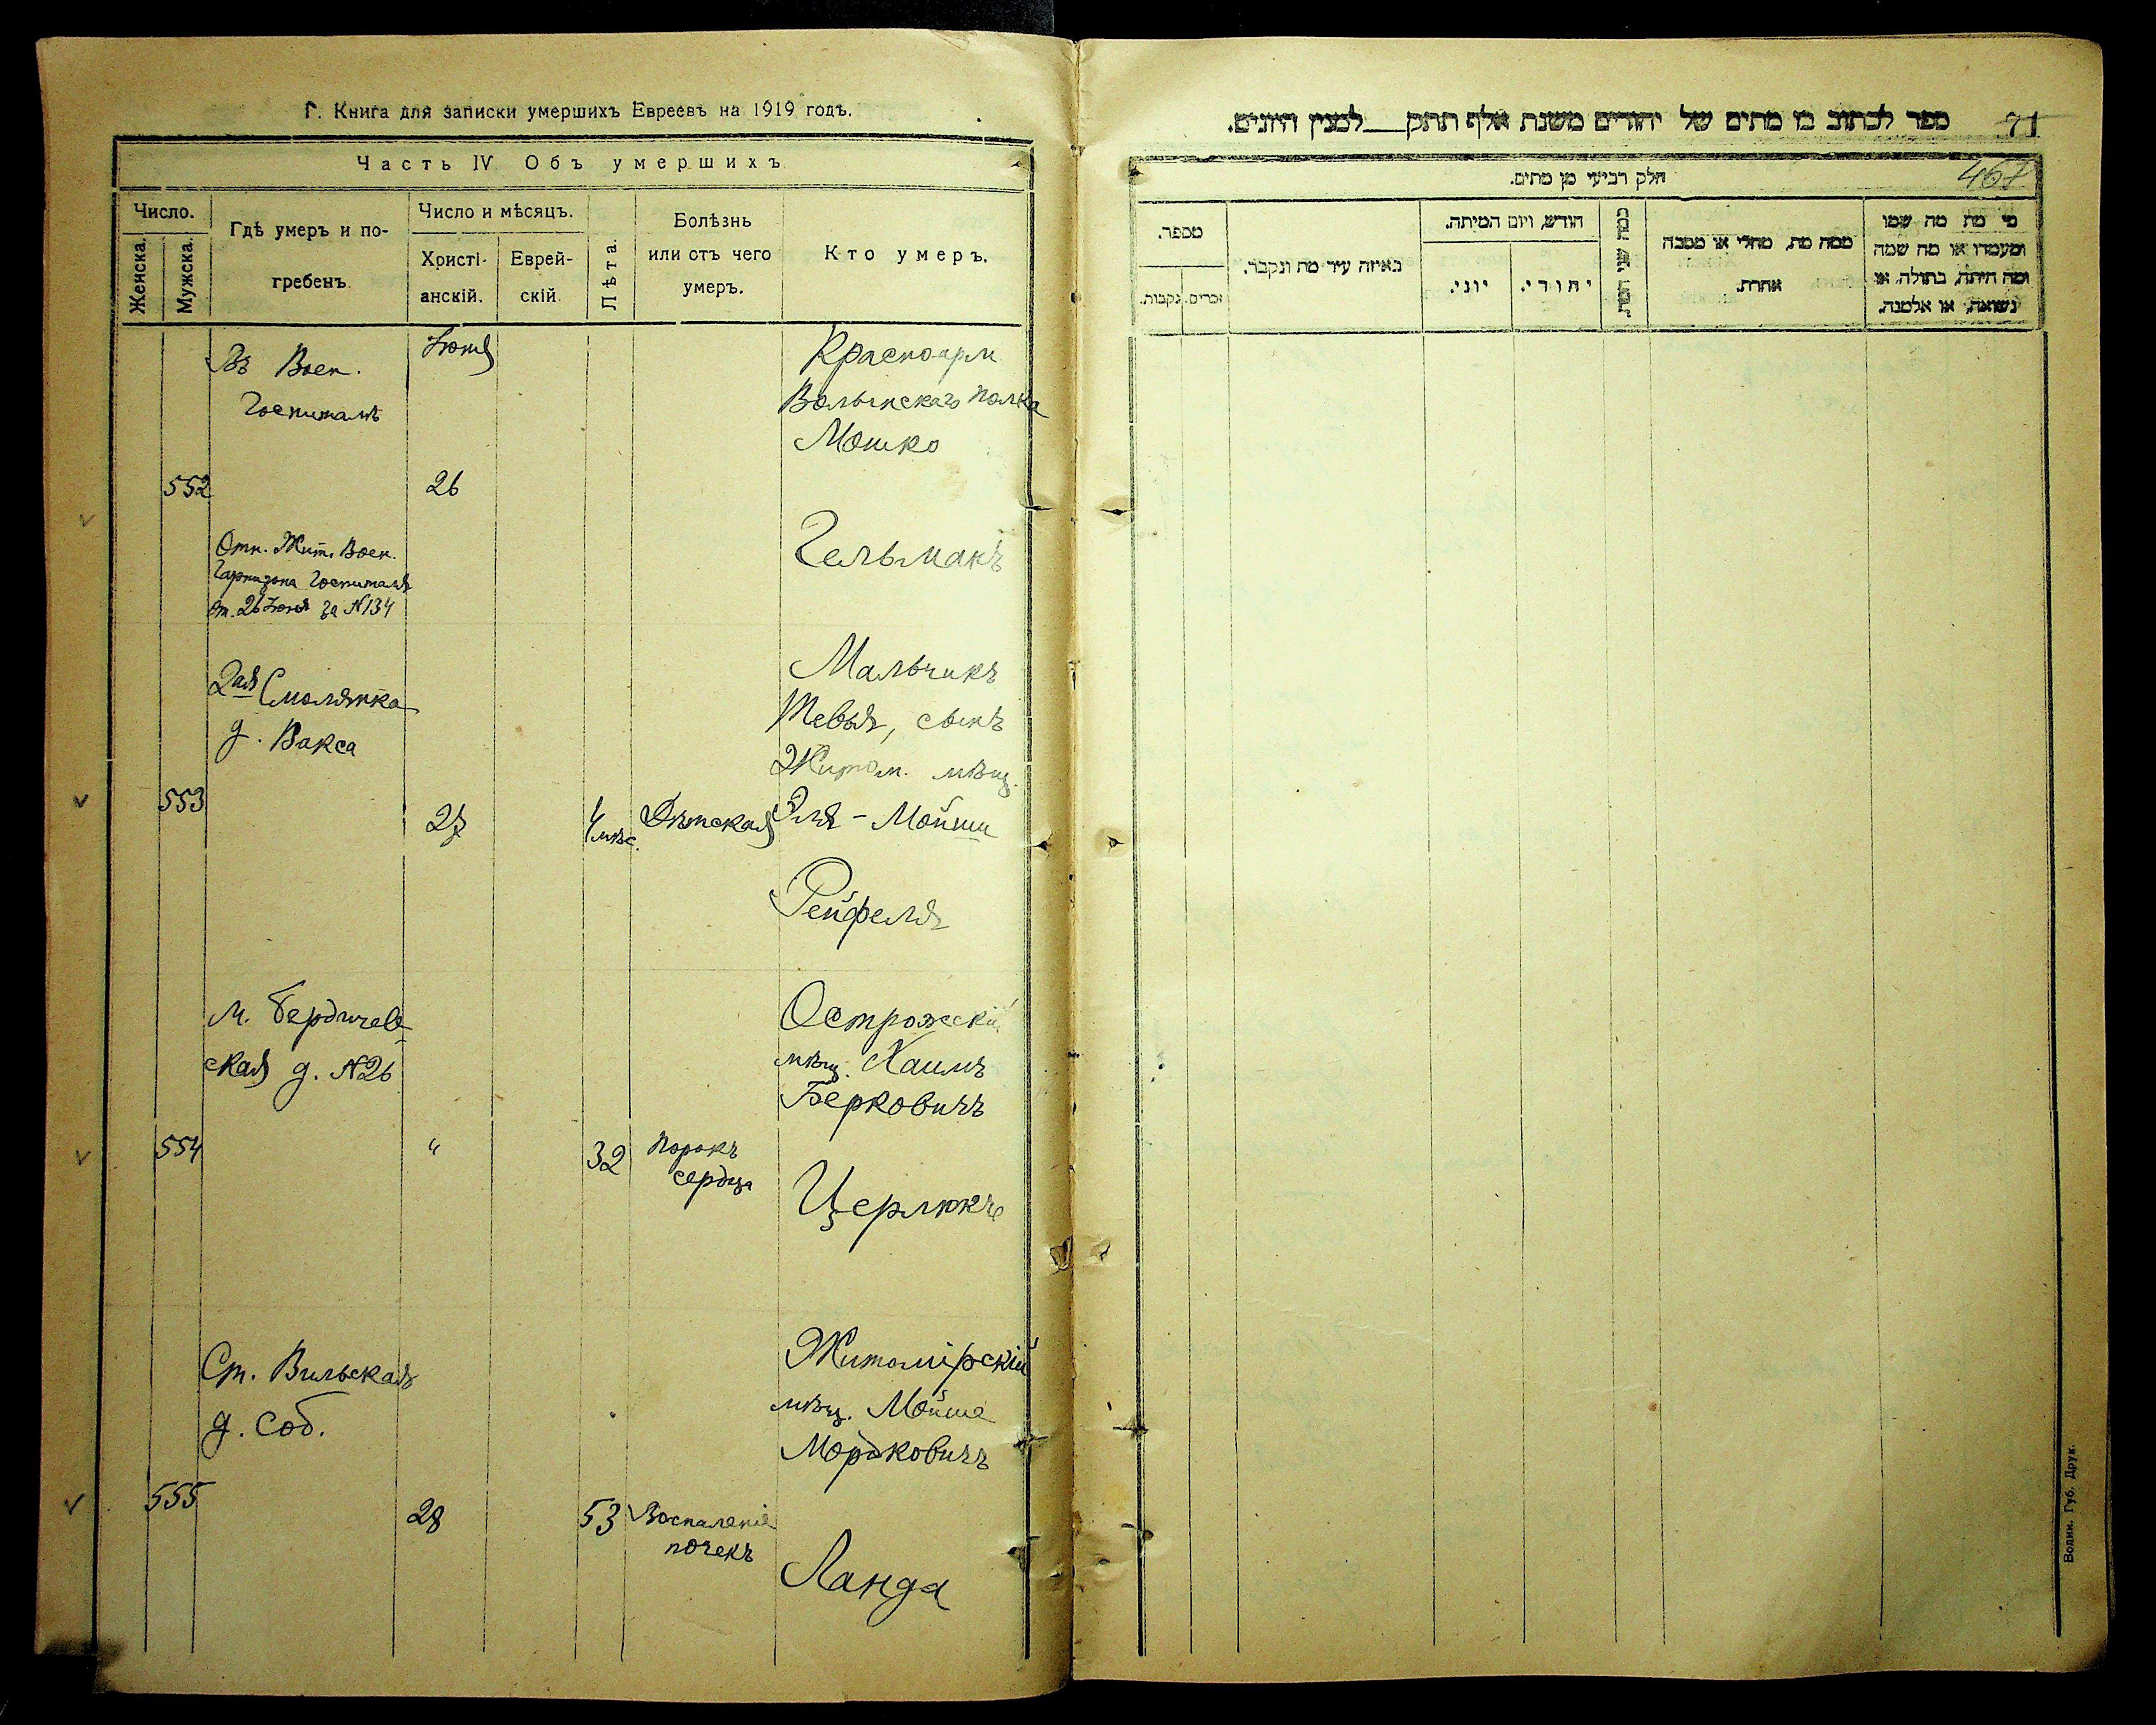 Г. Книга для записки умершихъ Евреевъ на 1919 годъ.
Часть IV Объ умершихъ
Число.
Женска.
Мужска.
Гдѣ умеръ и по-
гребенъ
Число и мѣсяцъ.
Христі-
анскій.
Еврей-
скій
Лѣта.
Болѣзнь
или отъ чего
умеръ.
Кто умеръ.
Въ Воен.
Госпиталѣ
Іюня
Красноарм
Волынскаго полка
Мошко
552
26
Гельманъ
Отн. Жит. Воен.
Гарнизона Госпиталя
от. 26 Іюня за №134
2ая Смолянка
д. Вакса
Мальчикъ
Тевья, сынъ
Житом. мѣщ.
553
27
4 мѣс.
Дѣтская
Эля - Мойши
Рейфеля
м. Бердичев-
ская д. №26
Острожскій
мѣщ. Хаимъ
Берковичъ
554
"
32
Порокъ
сердца
Церлюкъ
Ст. Вильская
д. соб.
Житомірскій
мѣщ. Мойше
Мордковичъ
555
28
53
Воспаленіе
почекъ
Ланда
ספר לכתוב בו מתים של יהודים משנת אלף תתק למנין היונים.
71
467
חלק רביעי מן מתים.
מספר.
זכרים.
נקבות.
באיזה עיר מת ונקבר.
חודש, ויום המיתה.
יוני.
יהודי.
ממה מת, מחלי או מסבה
אחרת.
מי מת מה שמו
ומעמדו או מה שמה
ומה היתה, בתולה, או
נשואה, או אלמנה.
Волин. Губ. Друк.